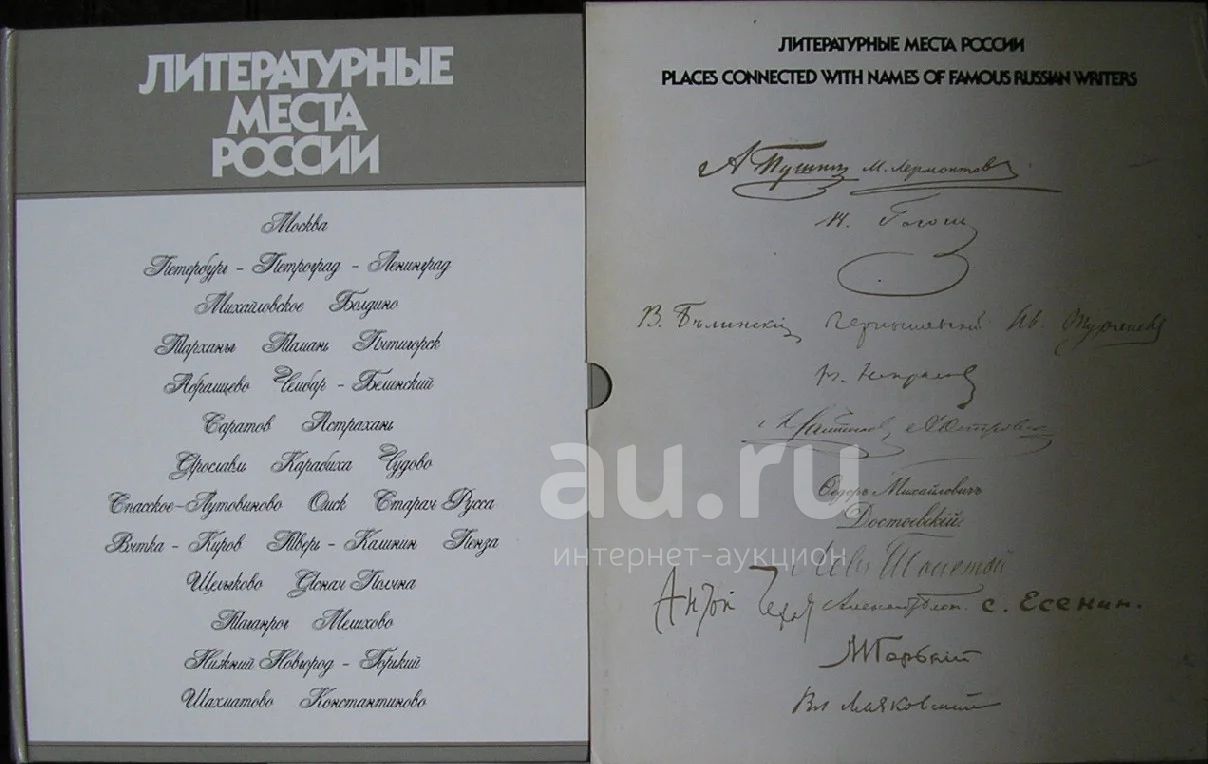 ЛИТЕРАТУРНЫЕ
МЕСТА
РОССИИ
Москва
Петербург - Петроград - Ленинград
Михайловское Болдино
Тарханы Тамань Пятигорск
Абрамцево Чембар - Белинский
Саратов Астрахань
Ярославль Карабиха Чудово
Спасское-Лутовиново Омск Старая Русса
Вятка - Киров Тверь - Калинин Пенза
Щелыково Ясная Поляна
Таганрог Мелихово
Нижний Новгород - Горький
Шахматово Константиново
ЛИТЕРАТУРНЫЕ МЕСТА РОССИИ
PLACES CONNECTED WITH NAMES OF FAMOUS RUSSIAN WRITERS
А Пушкин М. Лермонтов
Н. Гоголь
В. Бѣлинскій Чернышевскій Ив. Тургенев
Н. Некрасов
А Островск
Федоръ Михайловичъ
Достоевскій
Левъ Толстой
Антон Чехов Александр Блок. С. Есенин.
М Горький
Вл Маяковский
au.ru
интернет-аукцион